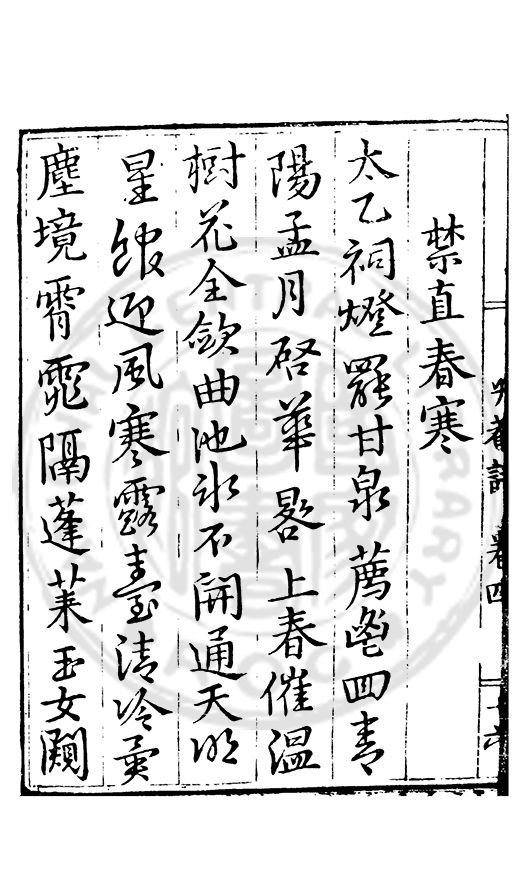 菴詩 卷四 十六
禁直春寒
太乙祠燈罷甘泉薦鬯回青
陽孟月啓華晷上春催溫
樹花全歛曲池氷不開通天明
星館迎風寒露臺清冷異
塵境霄霓隔蓬萊玉女闚